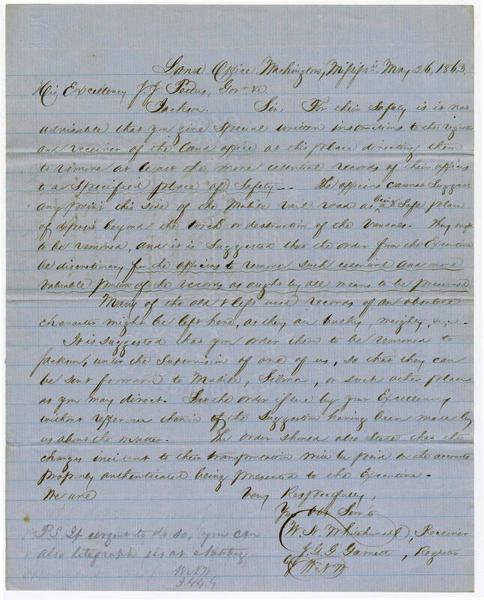 Land Office Washington, Missipi. May 26, 1863
His Excellency J J Pettus, Gov &c
Jackson. Sir, For their Safety it is now
advisable that you give Special written instructions to the register
and receiver of the land office at this place directing them
to remove at least the more essential records of their offices
to a Specified place of Safety. The officers cannot suggest
any point this side of the Mobile rail road as a safe place
of deposit beyond the torch or destruction of the vandals. They ought
to be removed, and it is Suggested that the order from the Executive
be discretionary for the officers to remove such essential and more
valuable portion of the records as ought by all means to be preserved
Many of the old & left used records of an obsolete
character might be left here, as they are bulky, weighty, &c.
It is suggested that you order them to be removed to
Jackson, under the supervision of one of us, so that they can
be sent forward to Mobile, Selma, or such other place
as you may direct. Let the order if sent by your Excellency
without reference therein of the suggestion having been made by
us about the matter. The order should also state that the
charges incident to their transportation will be paid on the accounts
properly authenticated being presented to the Executive.
We are Very Respectfully,
Your Obt Servts
W. N. Whitehurst, Receiver
J. G. G. Garrett, Register
of W. N. W
P.S. If urgent to do so, you can
also telegraph us at Natchez
W.N.W
J.G.G.G